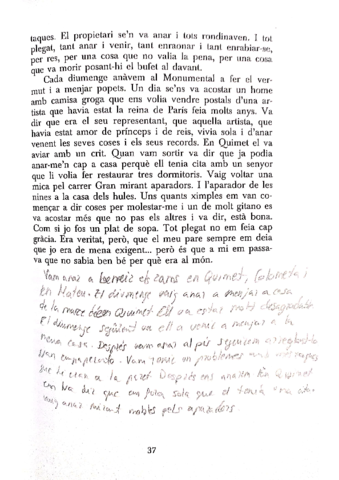 taques. El propietari se'n va anar i tots rondinaven. I tot
plegat, tant anar i venir, tant enraonar i tant enrabiar-se,
per res, per una cosa que no valia la pena, per una cosa
que va morir posant-hi el bufet al davant.
Cada diumenge anàvem al Monumental a fer el ver-
mut i a menjar popets. Un dia se'ns va acostar un home
amb camisa groga que ens volia vendre postals d'una ar-
tista que havia estat la reina de París feia molts anys. Va
dir que era el seu representant, que aquella artista, que
havia estat amor de prínceps i de reis, vivia sola i d'anar
venent les seves coses i els seus records. En Quimet el va
aviar amb un crit. Quan vam sortir va dir que ja podia
anar-me'n cap a casa perquè ell tenia cita amb un senyor
que li volia fer restaurar tres dormitoris. Vaig voltar una
mica pel carrer Gran mirant aparadors. I l'aparador de les
nines a la casa dels hules. Uns quants ximples em van co-
mençar a dir coses per molestar-me i un de molt gitano es
va acostar més que no pas els altres i va dir, està bona.
Com si jo fos un plat de sopa. Tot plegat no em feia cap
gràcia. Era veritat, però, que el meu pare sempre em deia
que jo era de mena exigent... però és que a mi em passa-
va que no sabia ben bé per què era al món.
Vam anar a
en Quimet,
En Mateu. El diumenge vaig anar a menjar a casa
de la mare
Quimet. Ell va estar molt desagradable
El diumenge següent va ell a
menjar a la
nova casa. Després vam anar al pis
Vam
problemes
a la paret. Després ens anàrem
Quimet
em va dir que
sola que el tenia una cita
vaig anar mirant mobles pels aparadors.
37